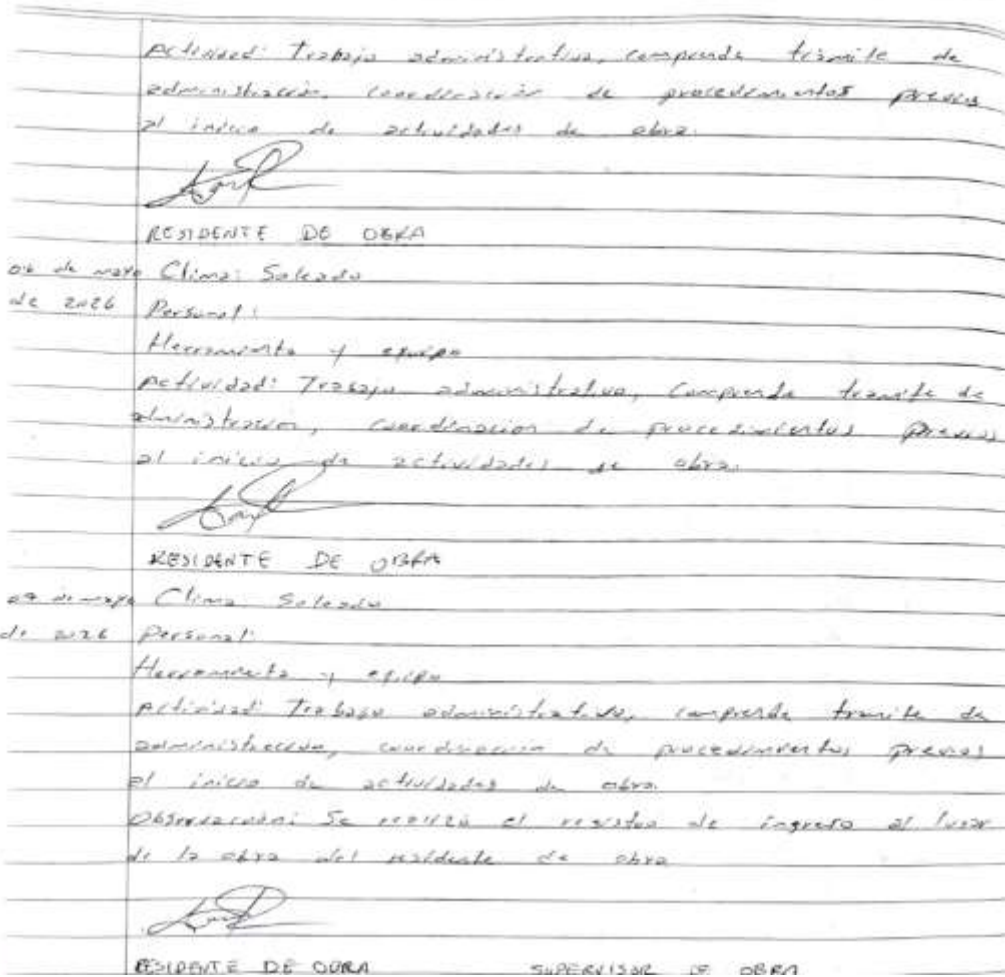 Actividad: Trabajo administrativo, comprende trámite de
administración, coordinación de procedimientos previos
al inicio de actividades de obra.
RESIDENTE DE OBRA
de mayo Clima: Soleado
de 2026 Personal:
Herramienta y equipo
Actividad: Trabajo administrativo, comprende tramite de
administracion, coordinacion de procedimientos previos
al inicio de actividades de obra.
RESIDENTE DE OBRA
de mayo Clima: Soleado
de 2026 Personal:
Herramienta y equipo
Actividad: Trabajo administrativo, comprende tramite de
administracion, coordinacion de procedimientos previos
al inicio de actividades de obra.
Observacion: Se realizó el registro de ingreso al lugar
de la obra del residente de obra
RESIDENTE DE OBRA SUPERVISOR DE OBRA